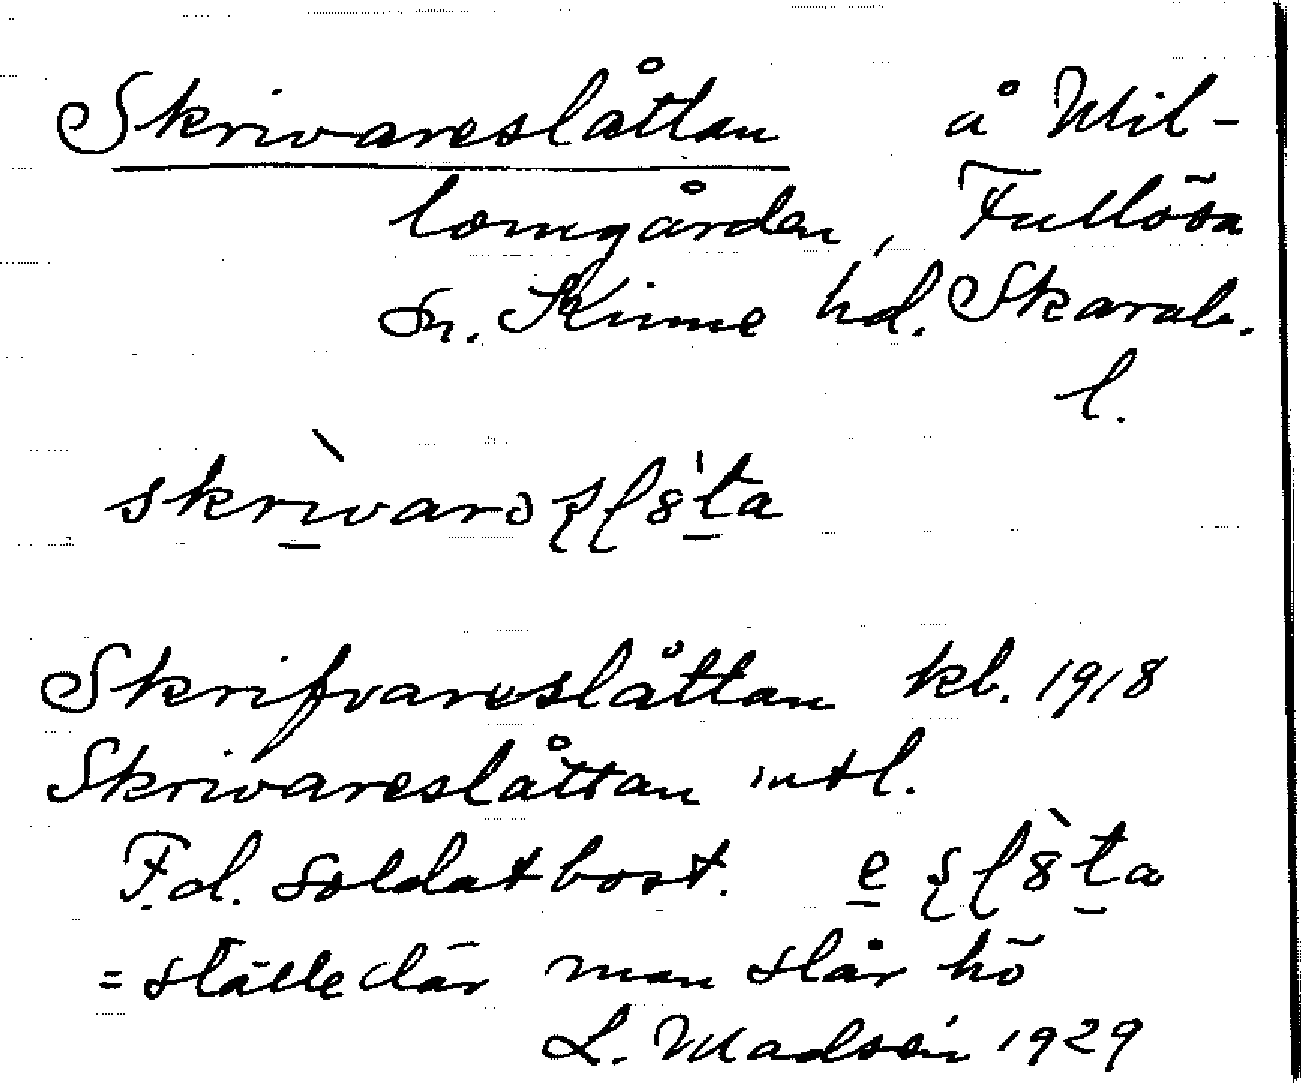 Skrivareslåttan å Wil-
lomgården, Fullösa
sn. Kinne hd. Skarab.
l.
skrìvarəslȣ̍ta
Skrifvareslåttan kb. 1918
Skrivareslåttan intl.
F.d. soldatbost. e slȣ̀ta
= ställe där man slår hö
L. Madsén 1929